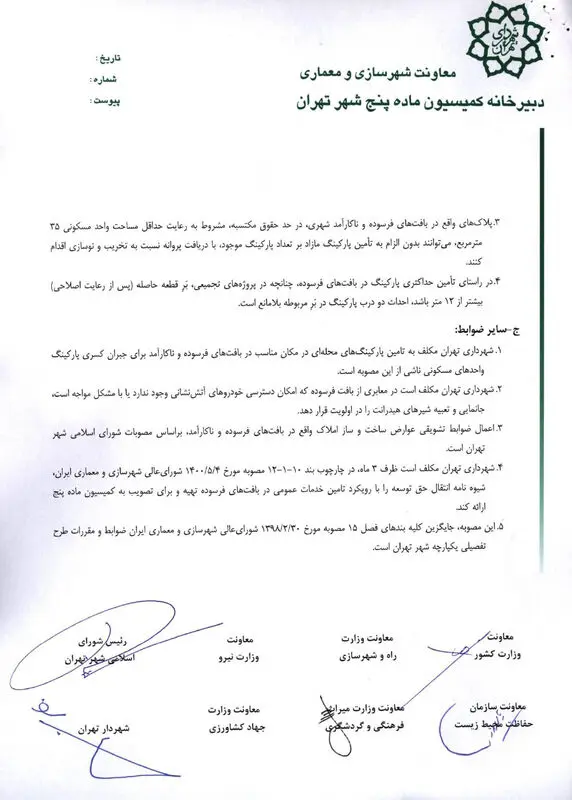 شهرداری تهران
معاونت شهرسازی و معماری
دبیرخانه کمیسیون ماده پنج شهر تهران
تاریخ :
شماره :
پیوست :
۳.پلاک‌های واقع در بافت‌های فرسوده و ناکارآمد شهری، در حد حقوق مکتسبه، مشروط به رعایت حداقل مساحت واحد مسکونی ۳۵
مترمربع، می‌توانند بدون الزام به تأمین پارکینگ مازاد بر تعداد پارکینگ موجود، با دریافت پروانه نسبت به تخریب و نوسازی اقدام
کنند.
۴.در راستای تأمین حداکثری پارکینگ در بافت‌های فرسوده، چنانچه در پروژه‌های تجمیعی، بَرِ قطعه حاصله (پس از رعایت اصلاحی)
بیشتر از ۱۲ متر باشد، احداث دو درب پارکینگ در بَرِ مربوطه بلامانع است.
ج-سایر ضوابط:
۱.شهرداری تهران مکلف به تامین پارکینگ‌های محله‌ای در مکان مناسب در بافت‌های فرسوده و ناکارآمد برای جبران کسری پارکینگ
واحدهای مسکونی ناشی از این مصوبه است.
۲.شهرداری تهران مکلف است در معابری از بافت فرسوده که امکان دسترسی خودروهای آتش‌نشانی وجود ندارد یا با مشکل مواجه است،
جانمایی و تعبیه شیرهای هیدرانت را در اولویت قرار دهد.
۳.اعمال ضوابط تشویقی عوارض ساخت و ساز املاک واقع در بافت‌های فرسوده و ناکارآمد، براساس مصوبات شورای اسلامی شهر
تهران است.
۴.شهرداری تهران مکلف است ظرف ۳ ماه، در چارچوب بند ۱۰-۱-۱۲ مصوبه مورخ ۱۴۰۰/۵/۴ شورای‌عالی شهرسازی و معماری ایران،
شیوه نامه انتقال حق توسعه را با رویکرد تامین خدمات عمومی در بافت‌های فرسوده تهیه و برای تصویب به کمیسیون ماده پنج
ارائه کند.
۵.این مصوبه، جایگزین کلیه بندهای فصل ۱۵ مصوبه مورخ ۱۳۹۸/۲/۳۰ شورای‌عالی شهرسازی و معماری ایران ضوابط و مقررات طرح
تفصیلی یکپارچه شهر تهران است.
معاونت
وزارت کشور
معاونت وزارت
راه و شهرسازی
معاونت
وزارت نیرو
رئیس شورای
اسلامی شهر تهران
معاونت سازمان
حفاظت محیط زیست
معاونت وزارت میراث
فرهنگی و گردشگری
معاونت وزارت
جهاد کشاورزی
شهردار تهران